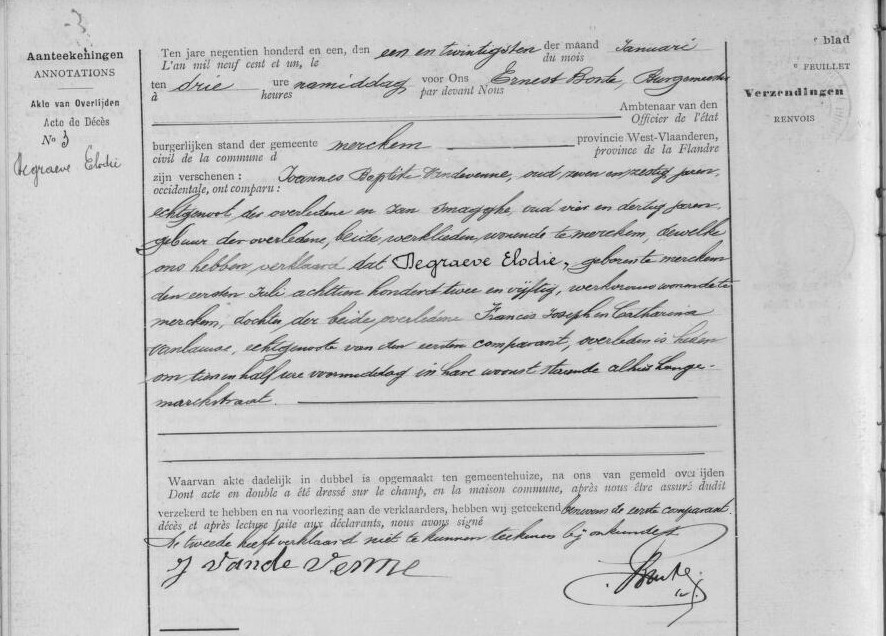 3
Aanteekeningen
ANNOTATIONS
Akte van Overlijden
Acte de Décès
No 3
Degraeve Elodie
Ten jare negentien honderd en een, den een en twintigsten der maand Januari
L'an mil neuf cent et un, le du mois
ten drie ure namiddag voor Ons Ernest Bonte, Burgemeester
à heures par devant Nous
Ambtenaar van den
Officier de l'état
burgerlijken stand der gemeente merckem provincie West-Vlaanderen,
civil de la commune d province de la Flandre
zijn verschenen : Joannes Baptiste Vandevenne, oud zeven en zestig jaren,
occidentale, ont comparu :
echtgenoot der overledene en Jan , oud vier en dertig jaren,
gebuur der overledene, beide werklieden, wonende te merckem, dewelke
ons hebben verklaard dat Degraeve Elodie, geboren te merckem
den eersten Juli achttien honderd twee en vijftig, werkvrouw wonende te
merckem, dochter der beide overledene Francis Joseph en Catharina
, echtgenoote van den eersten comparant, overleden is heden
om tien en half ure voormiddag in hare woonst staende alhier Lange-
marckstraat.
Waarvan akte dadelijk in dubbel is opgemaakt ten gemeentehuize, na ons van gemeld overlijden
Dont acte en double a été dressé sur le champ, en la maison commune, après nous être assuré dudit
verzekerd te hebben en na voorlezing aan de verklaarders, hebben wij geteekend benevens de eerste comparant.
décès et après lecture faite aux déclarants, nous avons signé
De tweede heeft verklaard niet te kunnen teekenen bij onkunde.
J Vande Venne
Bonte
blad
FEUILLET
Verzendingen
RENVOIS